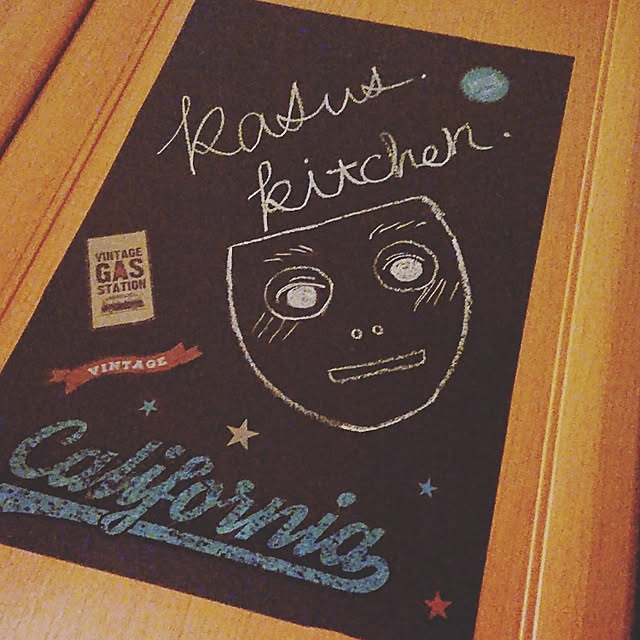 kasus.
kitchen.
VINTAGE
GAS
STATION
VINTAGE
California